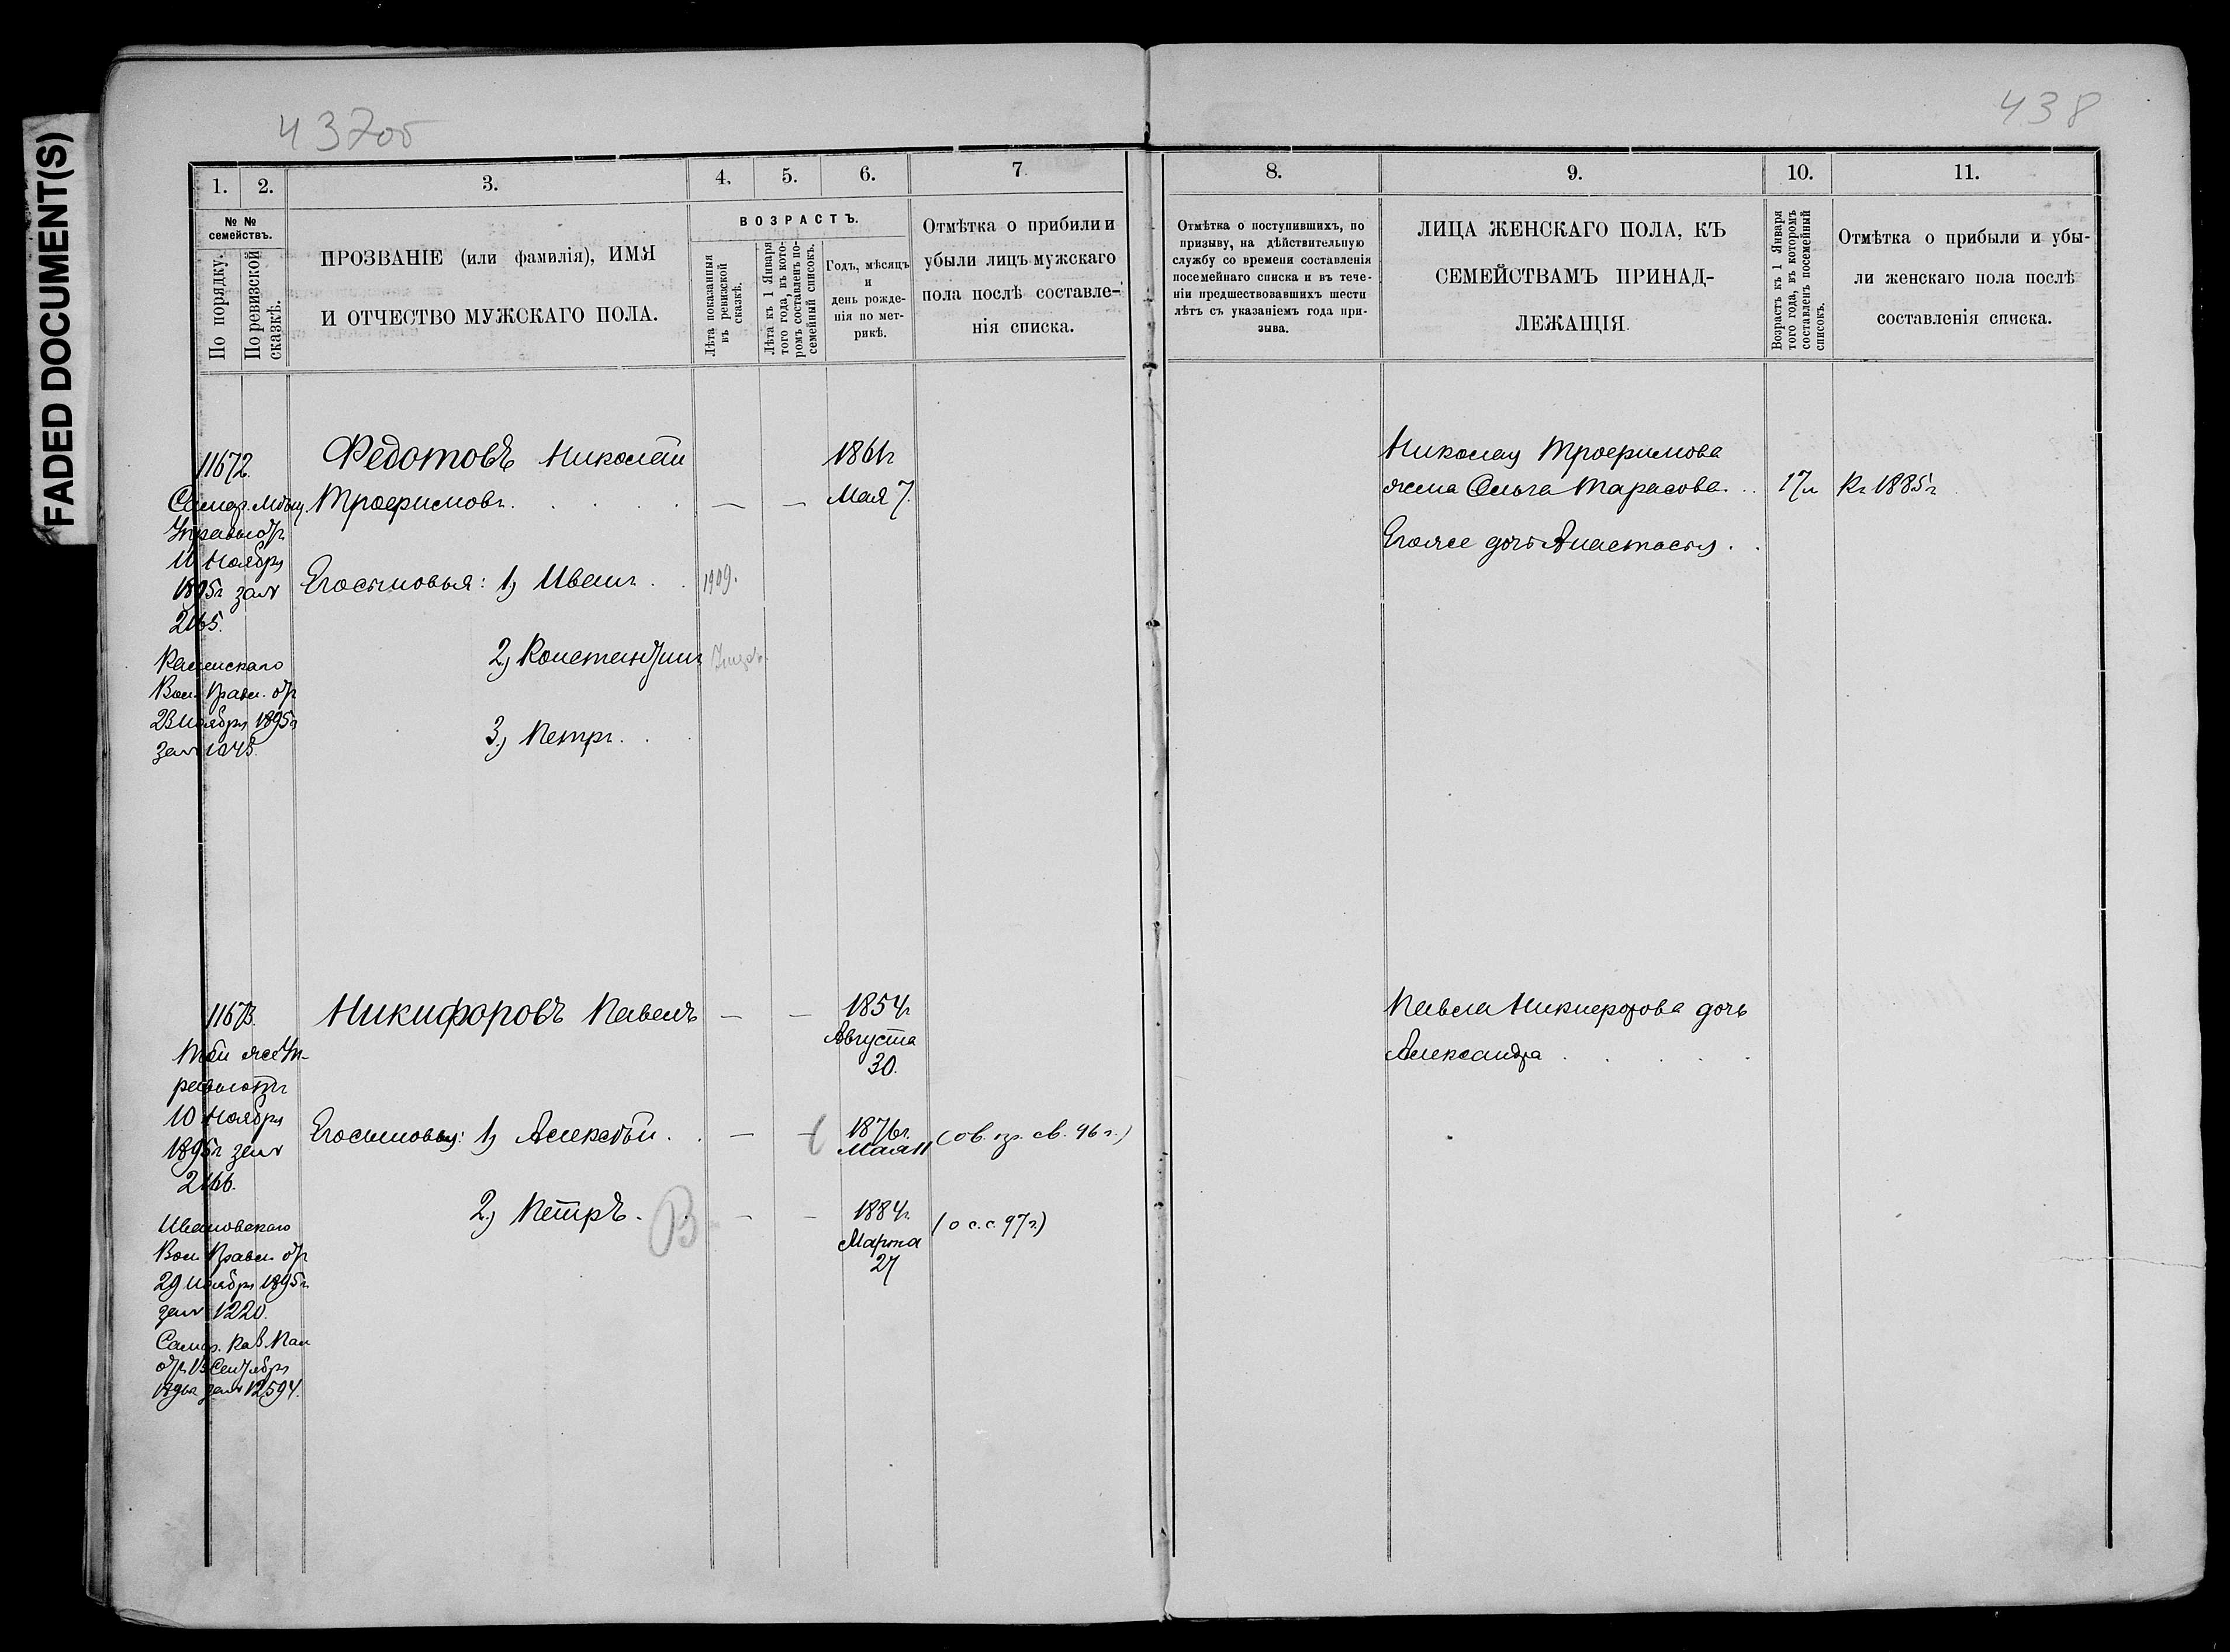 FADED DOCUMENT(S)
437об
438
1.
2.
3.
4.
5.
6.
7.
8.
9.
10.
11.
№ №
семействъ.
По порядку.
По ревизской
сказкѣ.
ПРОЗВАНІЕ (или фамилія), ИМЯ
И ОТЧЕСТВО МУЖСКАГО ПОЛА.
ВОЗРАСТЪ.
Лѣта показанныя
въ ревизской
сказкѣ.
Лѣта къ 1 Января
того года, въ кото-
ромъ составленъ по-
семейный списокъ.
Годъ, мѣсяцъ
и
день рожде-
нія по мет-
рикѣ.
Отмѣтка о прибыли и
убыли лицъ мужскаго
пола послѣ составле-
нія списка.
Отмѣтка о поступившихъ, по
призыву, на дѣйствительную
службу со времени составленія
посемейнаго списка и въ тече-
ніи предшествовавшихъ шести
лѣтъ съ указаніемъ года при-
зыва.
ЛИЦА ЖЕНСКАГО ПОЛА, КЪ
СЕМЕЙСТВАМЪ ПРИНАД-
ЛЕЖАЩІЯ.
Возрастъ къ 1 Января
того года, въ которомъ
составленъ посемейный
списокъ.
Отмѣтка о прибыли и убы-
ли женскаго пола послѣ
составленія списка.
11672.
Самар. Мѣщ.
Управы от
11 Ноября
1895г за №
2165.
Каменскаго
Вол. Правл. от
23 Ноября 1895г
за № 1048.
Федотовъ Николай
Трофимовъ. — —
1861г
Мая 7.
Его сыновья: 1, Иванъ. 1909.
2, Константинъ
3, Петръ.
Николая Трофимова
жена Ольга Тарасова 17л Къ 1885г
Его же дочь Анастасья.
11673.
Той же Уп-
равы отъ
10 Ноября
1895г за №
2166.
Ивановскаго
Вол. Правл. от
29 Ноября 1895г.
за № 1220.
Самар. Каз. Пал
от 13 Сентября
1896г за № 12594.
Никифоровъ Павелъ — —
1854г
Августа
30.
Его сыновья: 1, Алексѣй. — —
1876г.
Мая 11
2, Петръ. В — —
1884г.
Марта
27
(о с. с. 97г.)
Павла Никифорова дочь
Александра